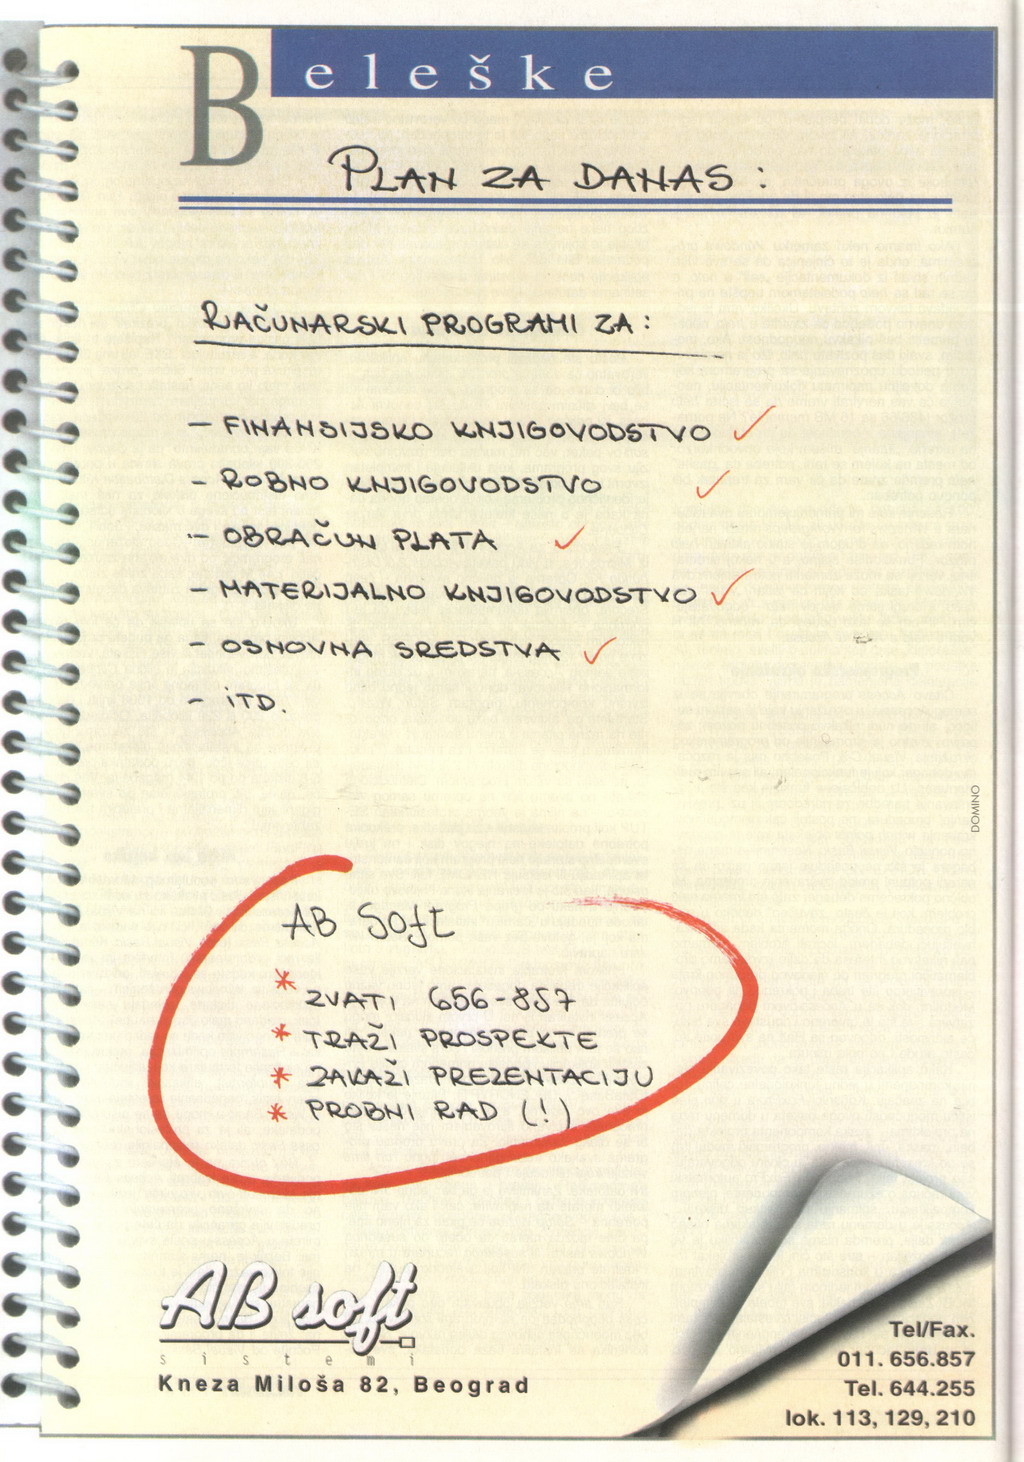 Beleške
PLAN ZA DANAS :
RAČUNARSKI PROGRAMI ZA :
– FINANSIJSKO KNJIGOVODSTVO
– ROBNO KNJIGOVODSTVO
– OBRAČUN PLATA
– MATERIJALNO KNJIGOVODSTVO
– OSNOVNA SREDSTVA
– ITD.
DOMINO
AB Soft
* ZVATI 656-857
* TRAŽI PROSPEKTE
* ZAKAŽI PREZENTACIJU
* PROBNI RAD (!)
AB soft
sistemi
Kneza Miloša 82, Beograd
Tel/Fax.
011. 656.857
Tel. 644.255
lok. 113, 129, 210